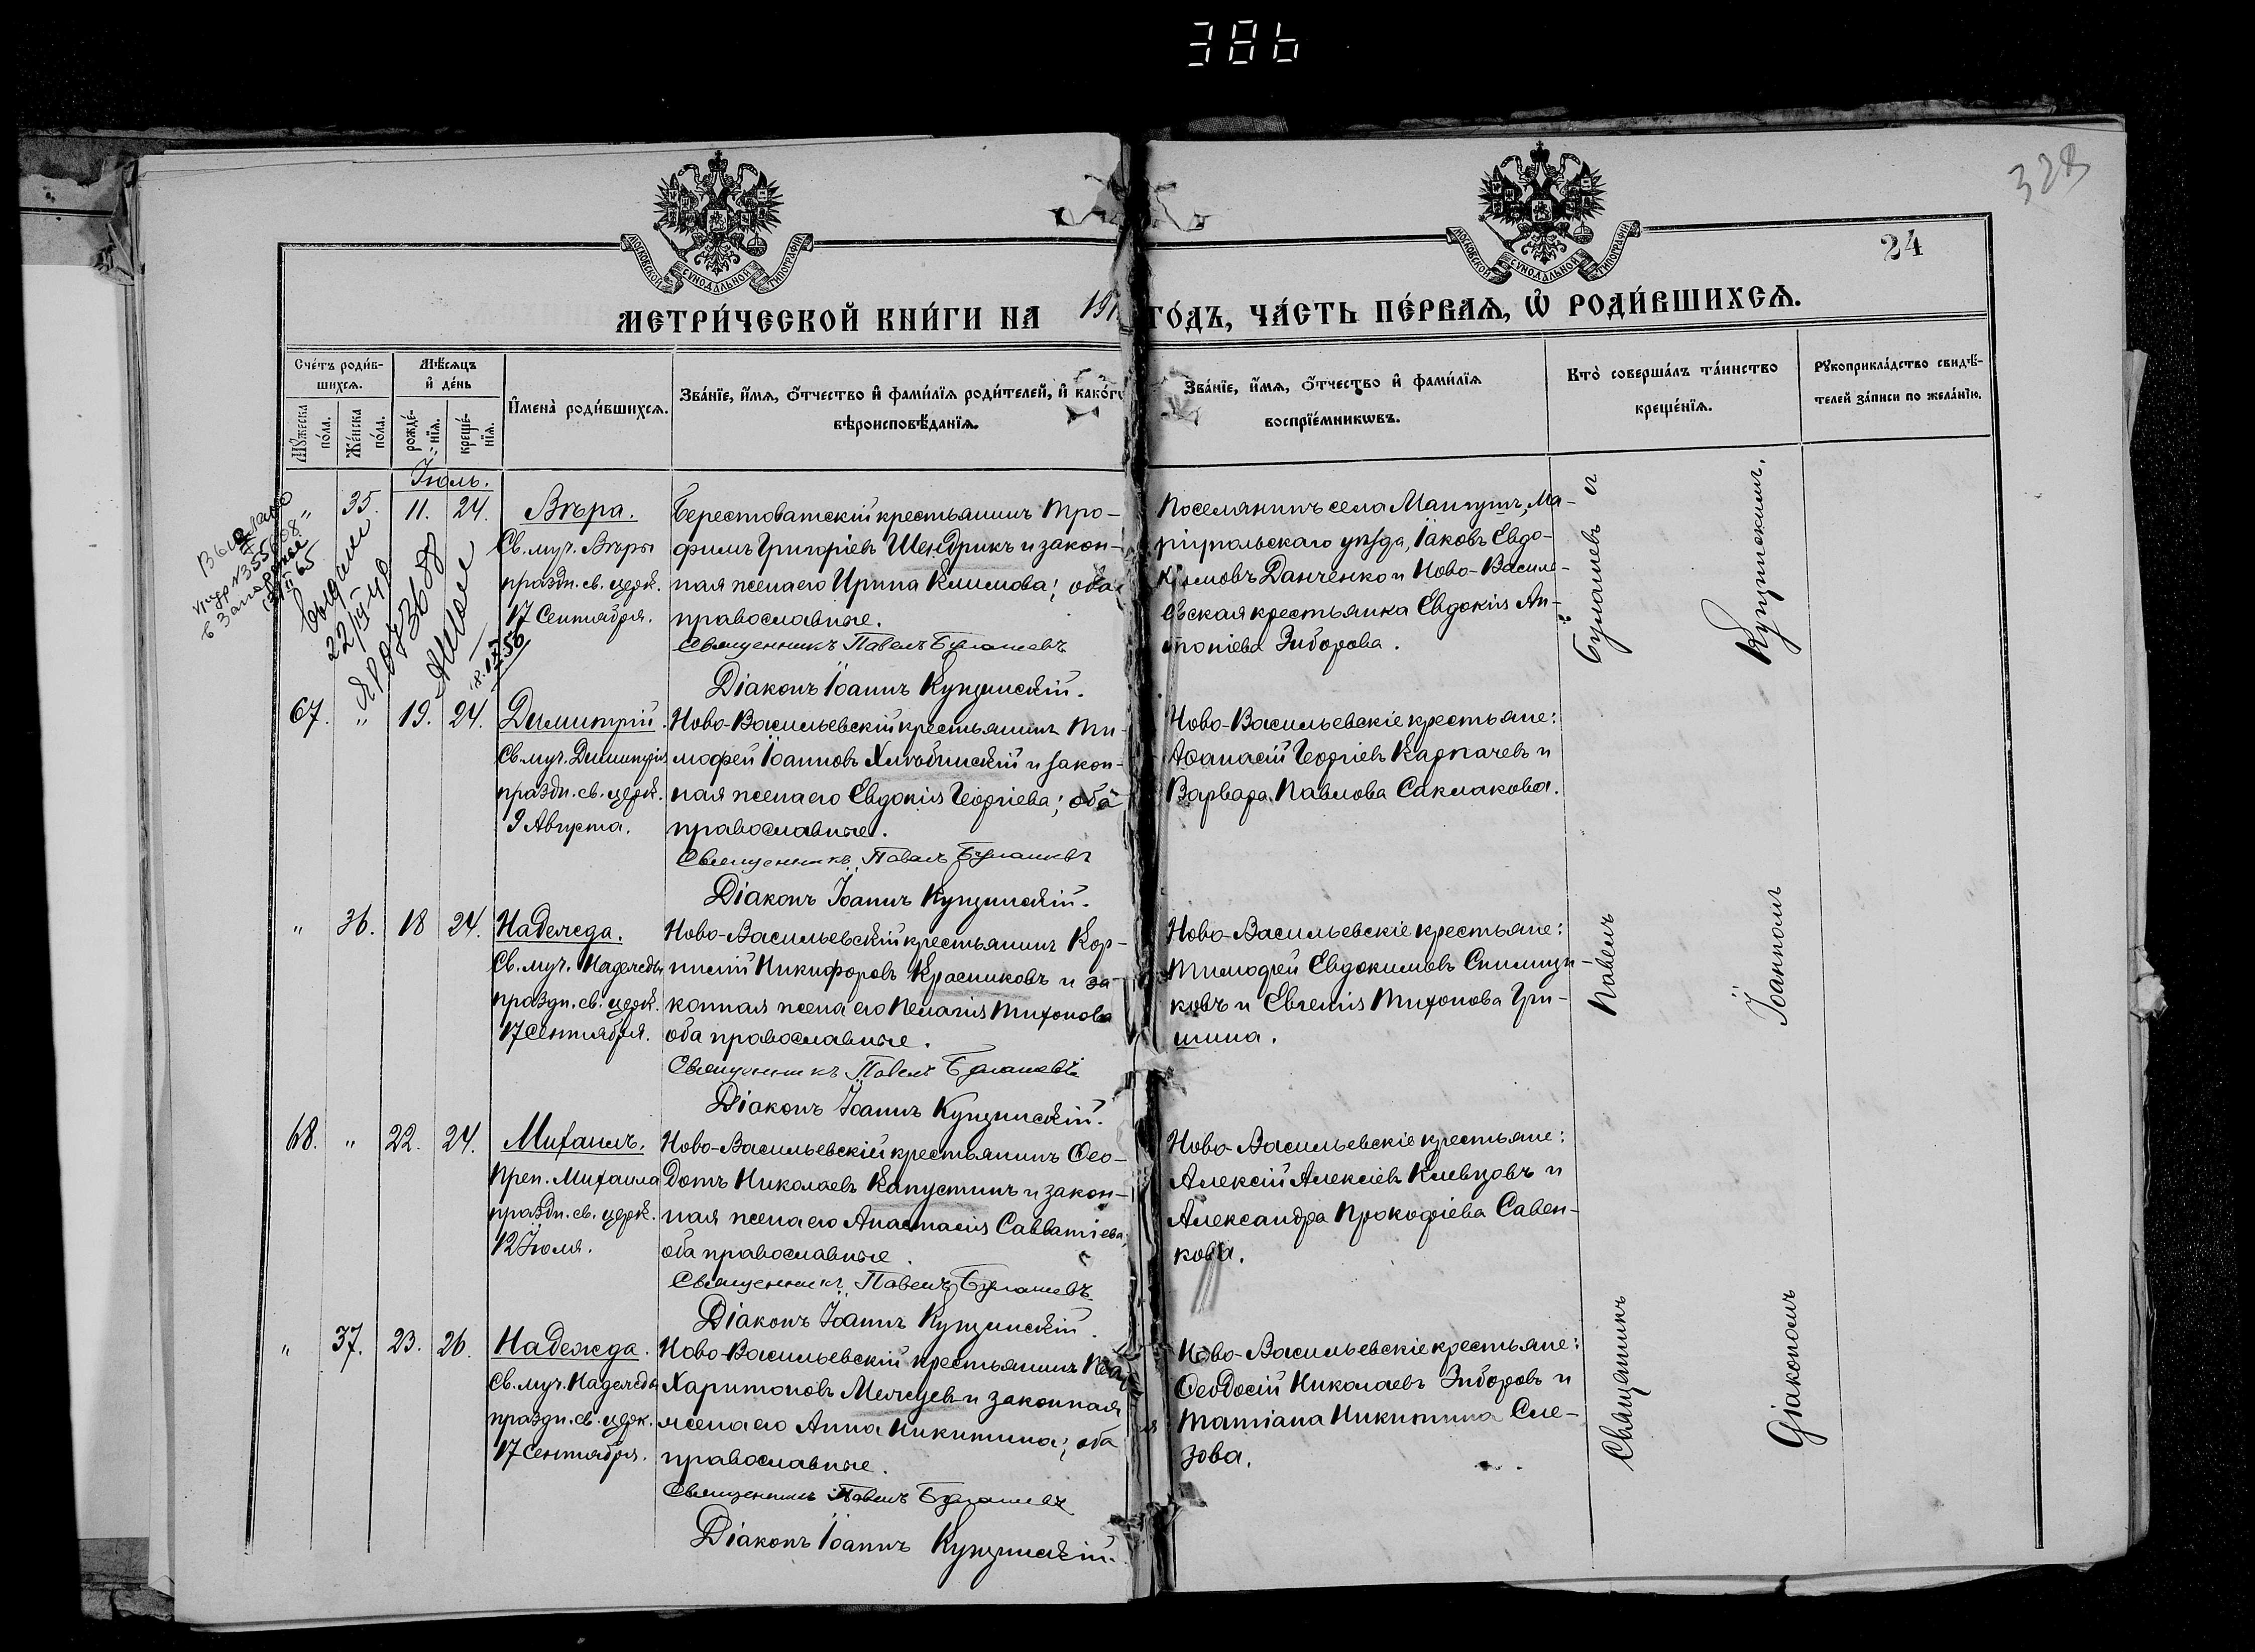 386
328
24
МОСКОВСКОЙ СѴНОДАЛЬНОЙ ТИПОГРАФІИ
МОСКОВСКОЙ СѴНОДАЛЬНОЙ ТИПОГРАФІИ
МЕТРИ́ЧЕСКОЙ КНИ́ГИ НА 191
ГО́ДЪ, ЧА́СТЬ ПЕ́РВАѦ, Ѡ҆ РОДИ́ВШИХСѦ.
Сче́тъ роди́в-
шихсѧ.
Мѣ́сѧцъ
и҆ де́нь
Мꙋ́жеска
по́ла.
Же́нска
по́ла.
рожде́-
нїѧ.
креще́-
нїѧ.
И҆мена̀ роди́вшихсѧ.
Зва́нїе, и҆́мѧ, ѻ҆́тчество и҆ фами́лїѧ роди́телей, и҆ како́гѡ
вѣроисповѣ́данїѧ.
Зва́нїе, и҆́мѧ, ѻ҆́тчество и҆ фами́лїѧ
воспрїе́мникѡвъ.
Кто̀ соверша́лъ та́инство
креще́нїѧ.
Рꙋкоприкла́дство свидѣ́-
телей за́писи по жела́нїю.
Іюль.
" 35. 11. 24.
Вѣра.
Св. муч. Вѣры
праздн. св. церк.
17 Сентября.
Берестоватскій крестьянинъ Тро-
фимъ Григоріевъ Шендрикъ и закон-
ная жена его Ирина Климова; оба
православные.
Священникъ Павелъ Булашевъ
Діаконъ Іоаннъ Купчинскій.
Поселянинъ села Мангушъ, Ма-
ріупольскаго уѣзда, Іаковъ Евдо-
кимовъ Данченко и Ново-Василь-
евская крестьянка Евдокія Ан-
тоніева Зиборова.
выдали
22/III 40
ЯР 073688
67. " 19. 24.
Димитрій.
Св. муч. Димитрія
праздн. св. церк.
9 Августа.
Ново-Васильевскій крестьянинъ Ти-
мофей Іоанновъ Хлѣбинскій и закон-
ная жена его Евдокія Георгіева; оба
православные.
Священникъ Павелъ Булашевъ
Діаконъ Іоаннъ Купчинскій.
Ново-Васильевскіе крестьяне:
Аѳанасій Георгіевъ Карпачевъ и
Варвара Павлова Саклакова.
" 36. 18 24.
Надежда.
Св. муч. Надежды
праздн. св. церк.
17 Сентября.
Ново-Васильевскій крестьянинъ Кор-
нилій Никифоровъ Красниковъ и за-
конная жена его Пелагія Тихонова
оба православные.
Священникъ Павелъ Булашевъ
Діаконъ Іоаннъ Купчинскій.
Ново-Васильевскіе крестьяне:
Тимофей Евдокимовъ
ковъ и Евгенія Тихонова Гри-
шина.
68. " 22. 24.
Михаилъ.
Преп. Михаила
праздн. св. церк.
12 Іюля.
Ново-Васильевскій крестьянинъ Ѳео-
дотъ Николаевъ Капустинъ и закон-
ная жена его Анастасія Савватіева,
оба православные.
Священникъ Павелъ Булашевъ
Діаконъ Іоаннъ Купчинскій.
Ново-Васильевскіе крестьяне:
Алексій Алексіевъ Клевцовъ и
Александра Прокофіева Савен-
кова.
" 37. 23. 26.
Надежда.
Св. муч. Надежды
праздн. св. церк.
17 Сентября.
Ново-Васильевскій крестьянинъ
Харитоновъ Мелчуевъ и законная
жена его Анна Никитина; оба
православные.
Священникъ Павелъ Булашевъ
Діаконъ Іоаннъ Купчинскій.
Ново-Васильевскіе крестьяне:
Ѳеодосій Николаевъ Зиборовъ и
Татіана Никитина Сле-
зова.
Священникъ Павелъ Булашевъ съ
Діакономъ Іоанномъ Купчинскимъ.